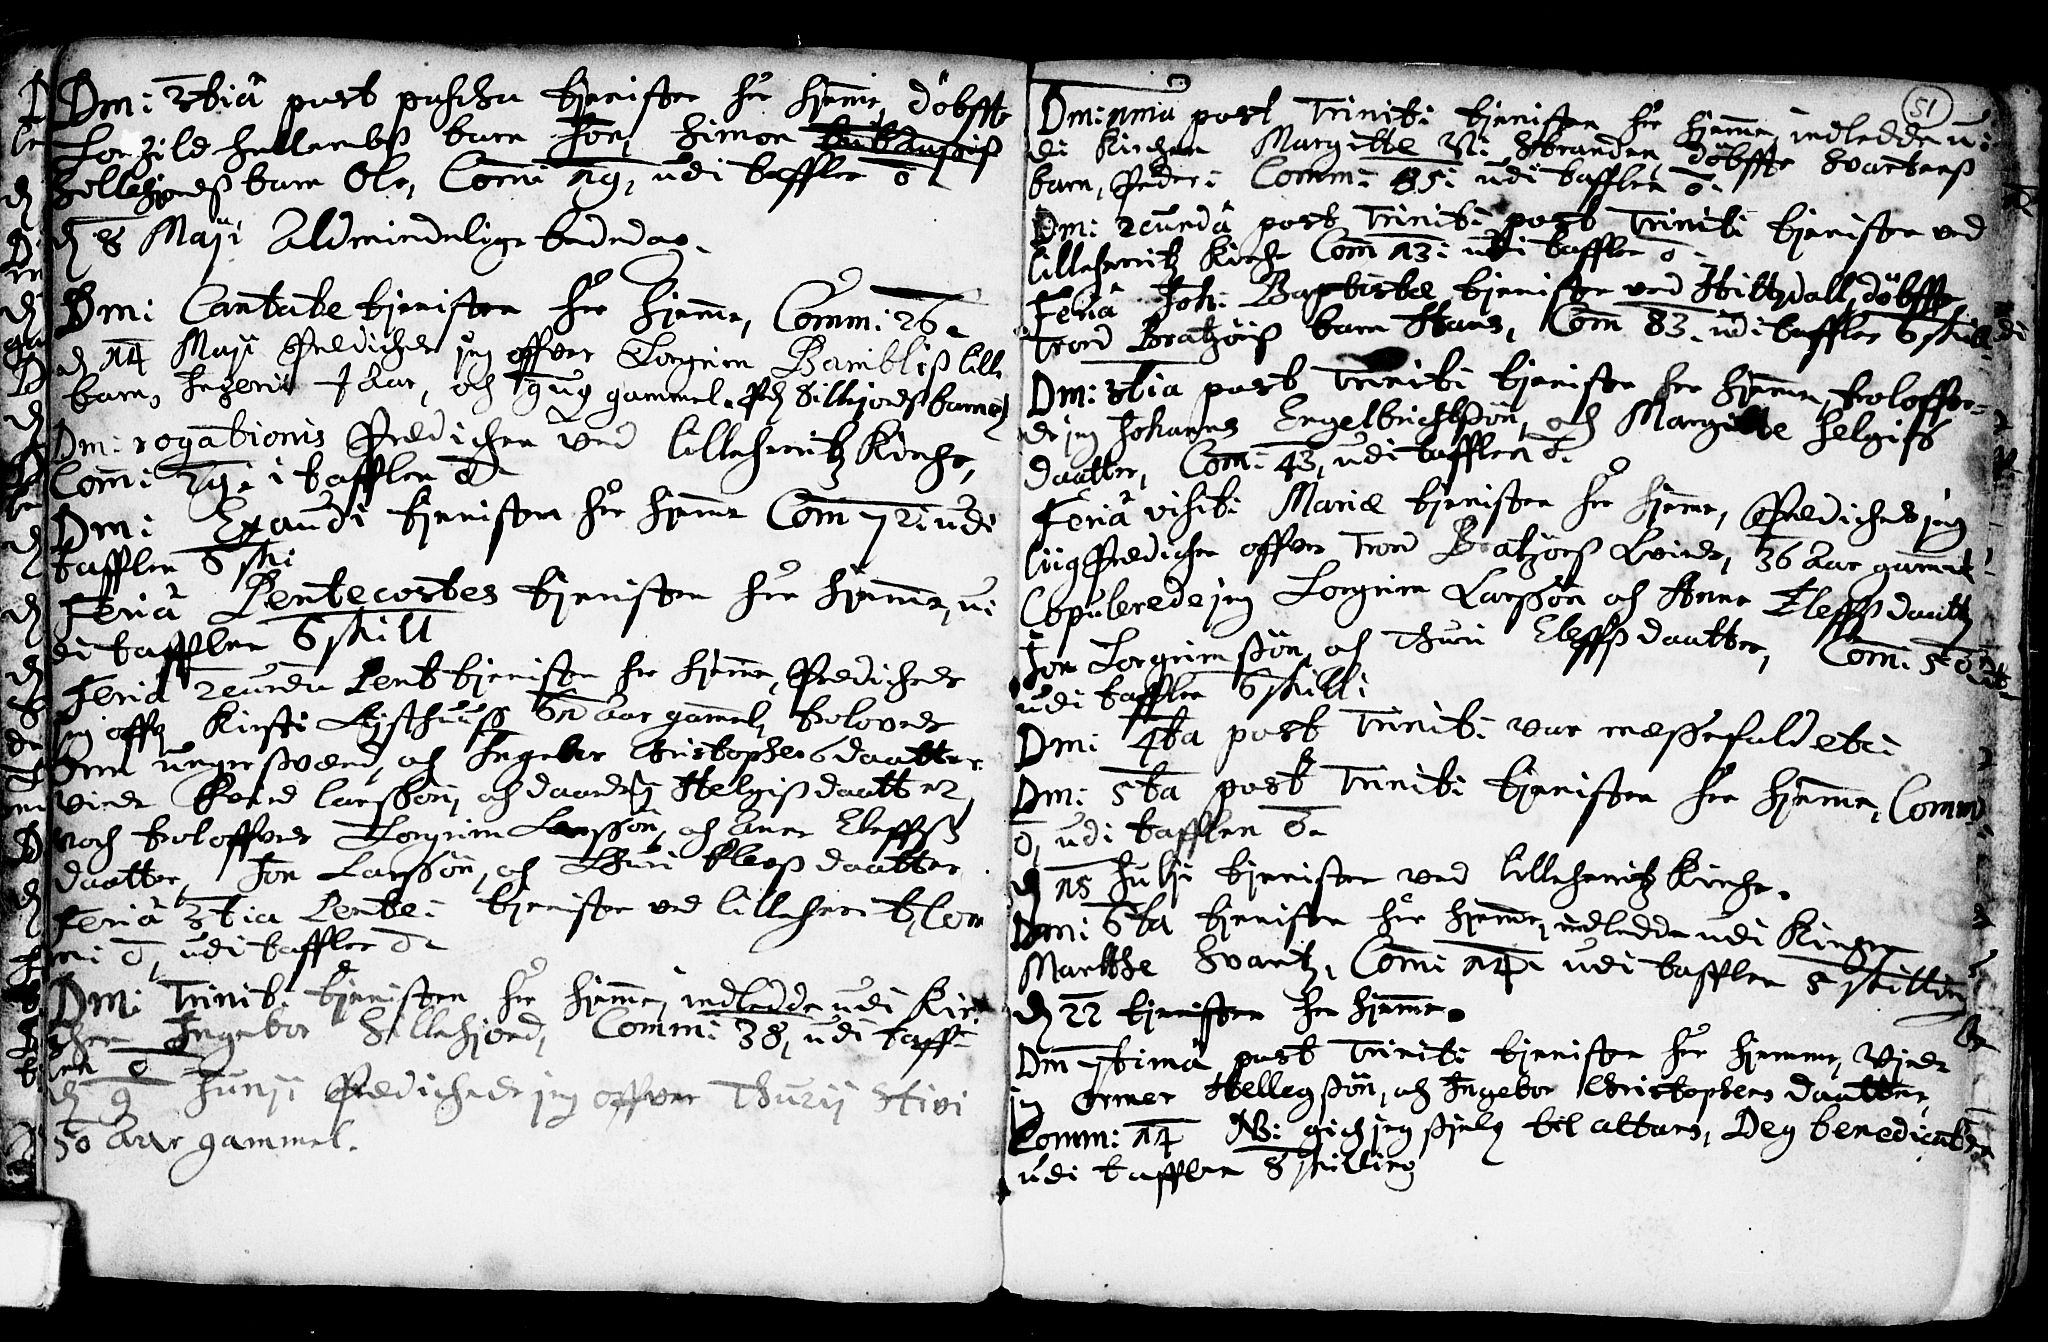 Dmi: 3tiâ post pascha tienisten her hjemme, döbfte
Torgild Hellembs barn Jon, Simon
Sillejords barn Ole, Commi 19, udi tafflen 0
d 8 Maji Aldmindelige bededag.
Dmi: Cantate tienisten her hjemme, Commi 26.
d 14 Maji Predichede jeg offver Torgrim Bamblis lille
barn, Ingerid 1 Aar, och uger gammel. Sillejords barn
Dmi: rogationis Predichen ved Lilleherritz Kirche,
Commi 29: i tafflen 0
Dmi: Exaudi tienisten her hjemme Com 72: udi
tafflen 8 ski
Feriâ Pentecostes tienisten her hjemme, u-
di tafflen 6 skill
Feriâ 2cunda Pent tienisten her hjemme, Predichede
jeg offr Kirsti 61 Aar gamel, trolovede
ungersvend, och Ingebor Christophersdaatter
viede Svend Larssön, och Helgisdaatter,
noch troloffvede Torgrim Larssön, och Anne Eleffs
daatter, Jon Larssön, och Thuri Eleffsdaatter
Feriâ 3tia Pente: tienisten ved Lilleherritz Com
mi 0, udi tafflen 0
Dmi: Trinit: tienisten her hjemme, indledde udi Kir-
chen Ingebor Sillejord, Commi: 38, udi taff-
len 0
d 9 Junij Predichede jeg offver Thurij Stivi
50 Aar gammel.
51
Dmi: 1ma post Triniti tienisten her hjemme, indledde u-
di Kirchen Margitte döbfte Svartens
barn, Peder: Commi: 45: udi tafflen 0.
Dmi: 2cundâ post Triniti post Triniti tienisten ved
Lilleherritz Kirche Com 13: udi tafflen 0
Feriâ Joh: Baptistæ tienisten ved Hitterdall, döbfte
Trond Bratzöns barn Hans, Com 83. udi tafflen 6 skill
Dmi: 3tia post Triniti tienisten her hjemme, troloffve-
de jeg Johannes Engelbrichtssön, och Margitte Helgis
daatter, Com: 43, udi tafflen 0.
Feriâ visiti Mariæ tienisten her hjemme, Predichede jeg
liigPredichen offver Trond Bratzöns Qvinde, 36 Aar gammel
Copulerede jeg Torgrim Larssön och Anne Eleffsdaatter
Jon Torgrimssön, och Thuri Eleffsdaatter, Com: 50
udi tafflen 6 skill:
Dmi: 4ta post Triniti var messefald etc:
Dmi: 5ta post Triniti tienisten her hjemme, Commi
0, udi tafflen 0.
d 15 Julij tienisten ved Lilleherritz Kirche.
Dmi: 6ta tienisten her hjemme, indledde udi Kirchen
Marthe Svartz, Comi 14. udi tafflen 8 skilling
d 22 tienisten her hjemme.
Dmi 7timâ post Triniti tienisten her hjemme, Viede
jeg Ormer Hellegssön, och Ingebor Christophersdaatter,
Commi: 14 NB: gich jeg sielf til altars, Deg benedicatus
udi tafflen 8 skilling